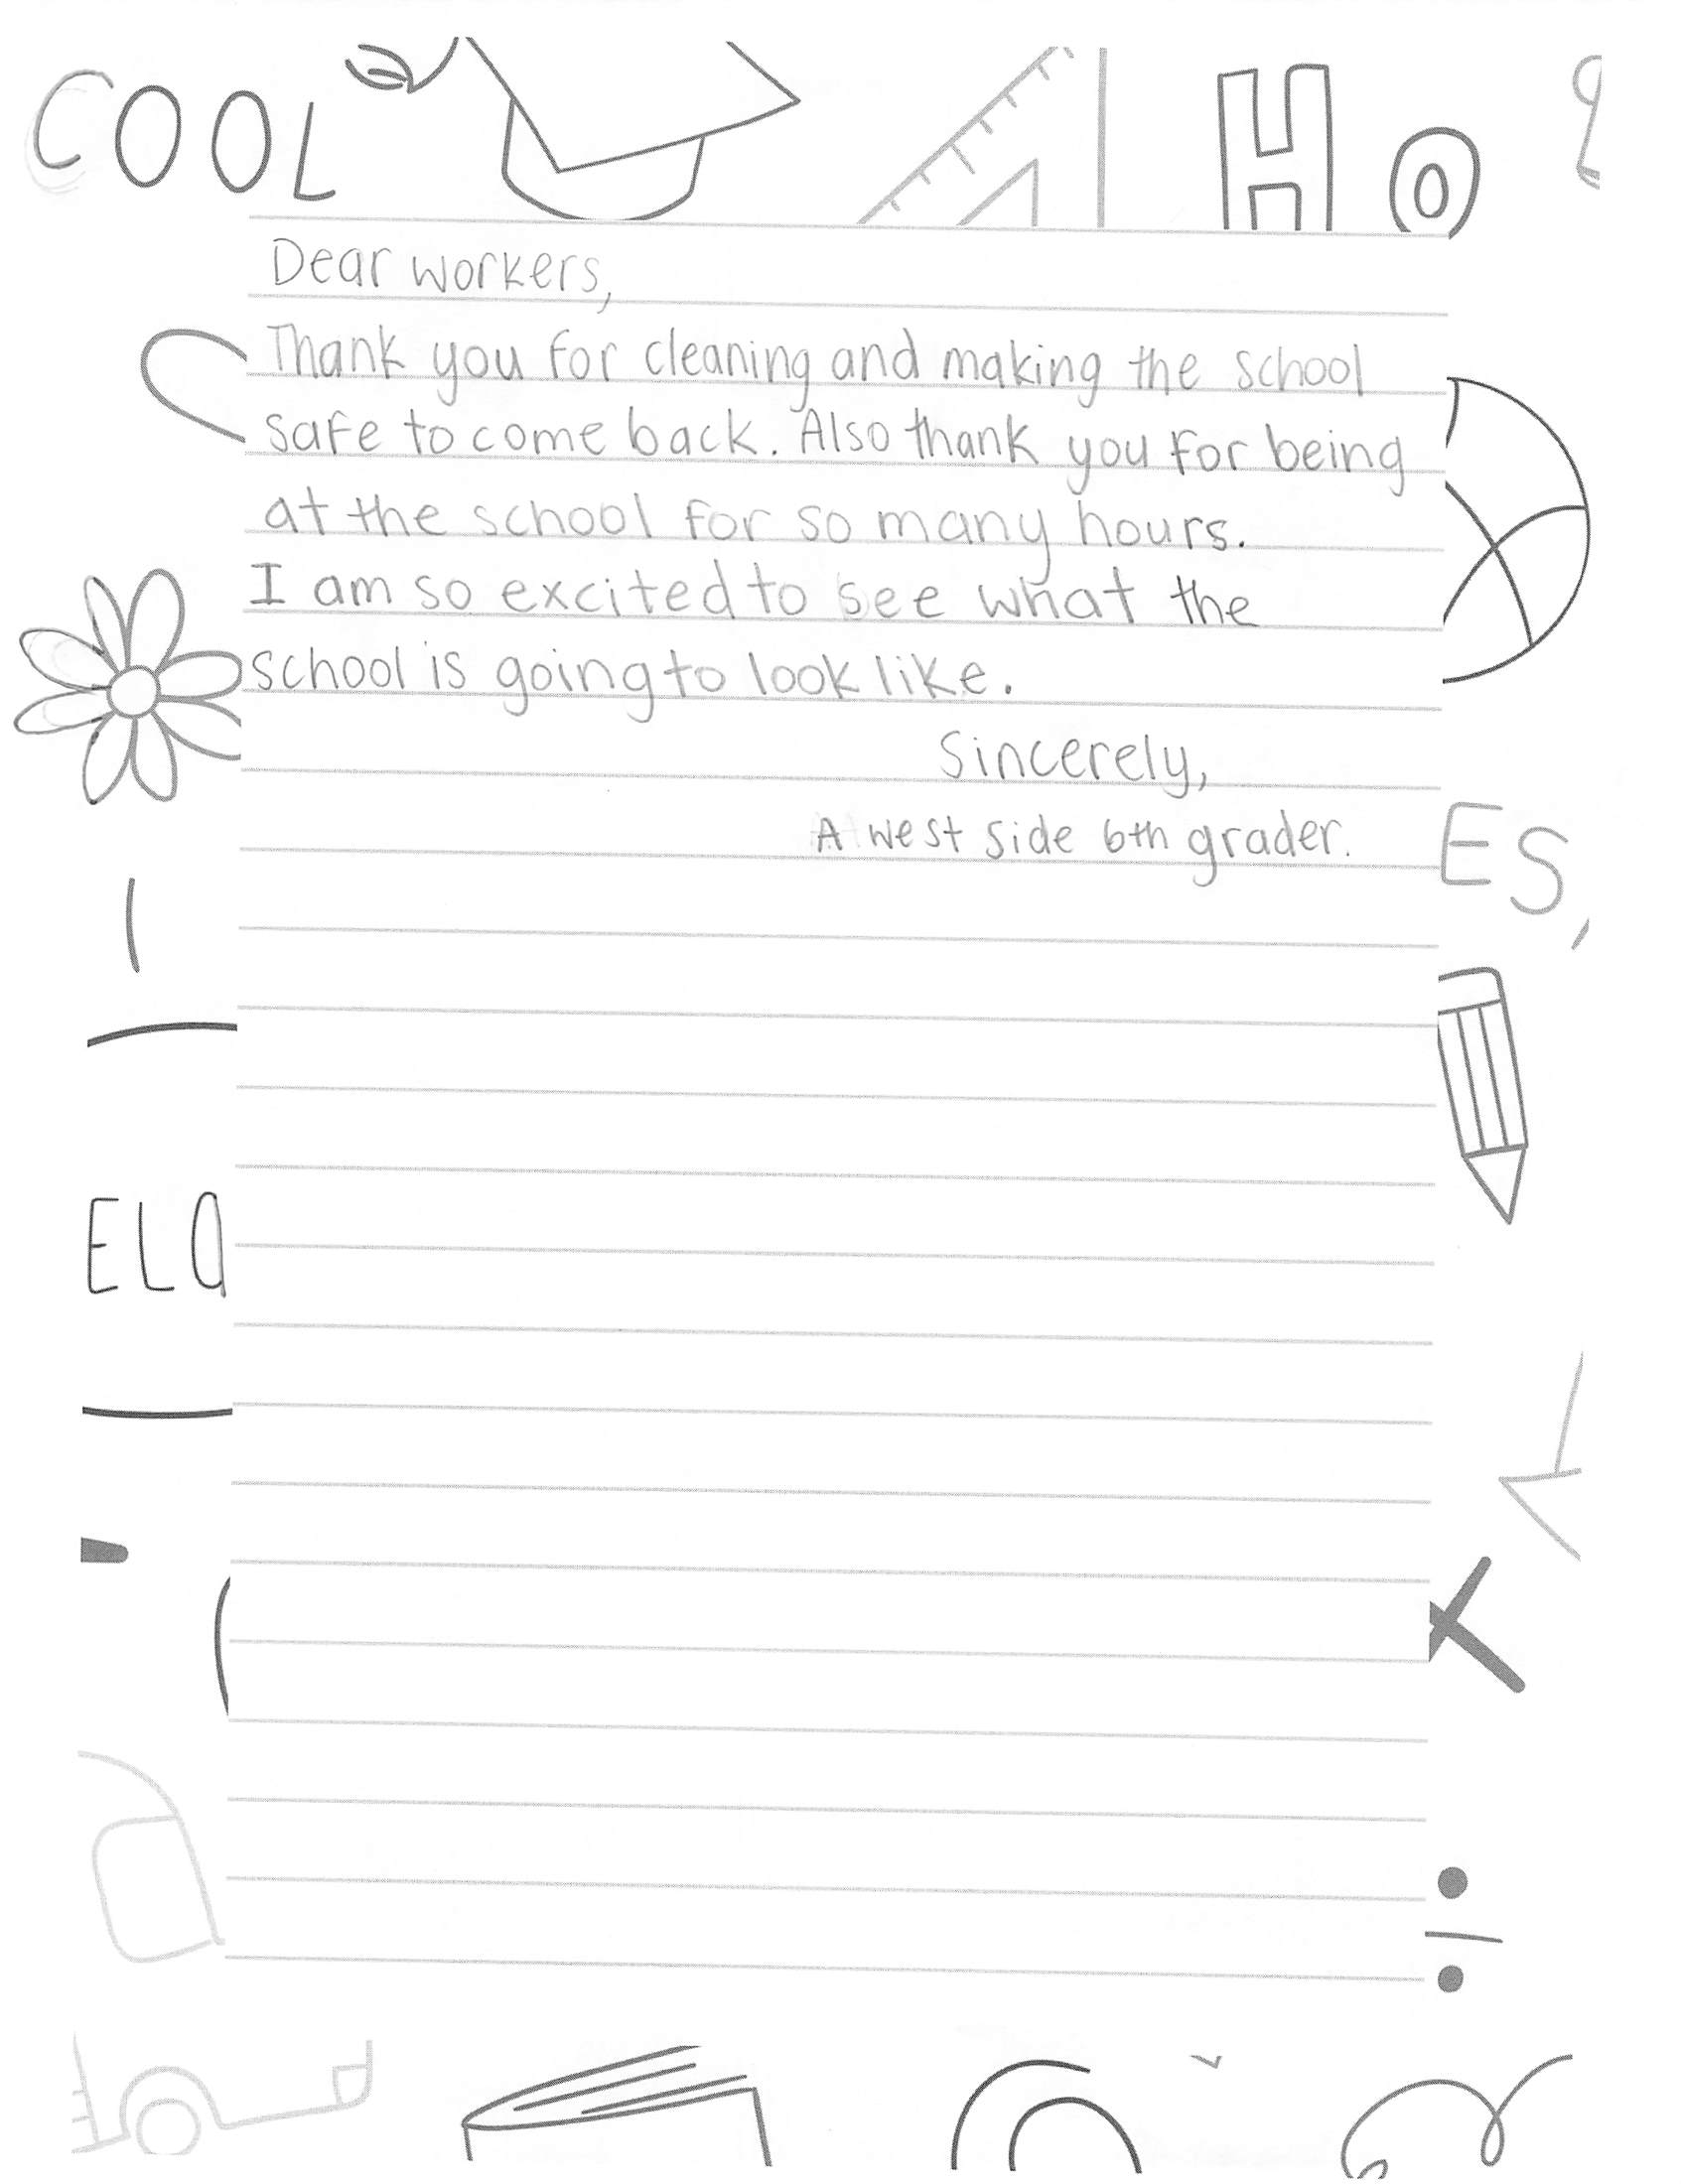 COOL
Ho
Dear workers,
Thank you for cleaning and making the school
safe to come back. Also thank you for being
at the school for so many hours.
I am so excited to see what the
school is going to look like.
Sincerely,
A west side 6th grader.
ES,
ELA